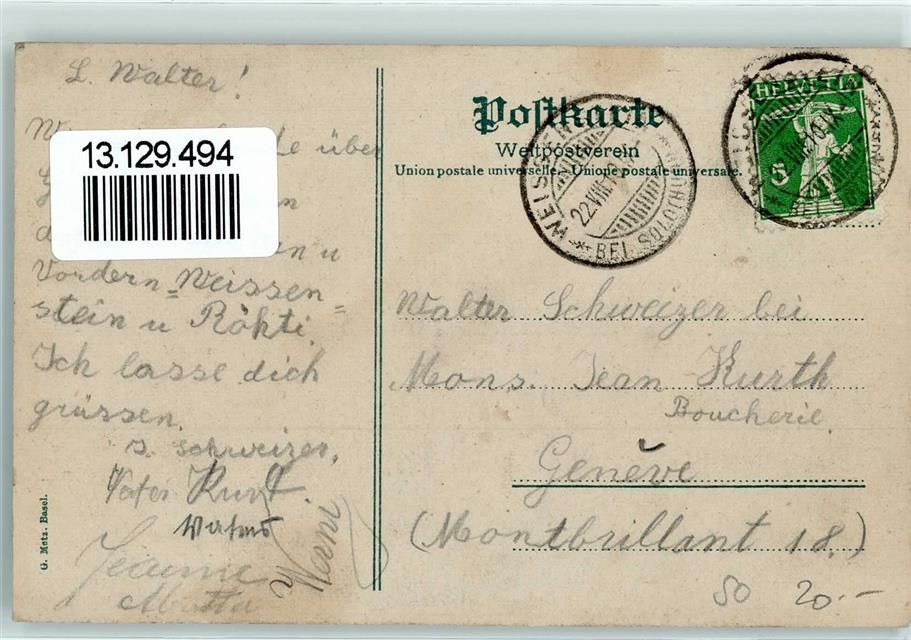 L. Walter!
13.129.494
über
n u
Vordern-Weissen=
stein u Röhti.
Ich lasse dich
grüssen.
S. Schweizer.
Vater Kurt.
Jeanne
G. Metz. Basel.
Postkarte
Weltpostverein
Union postale universelle. - Unione postale universale.
WEISSENSTEIN
22.VIII.10
BEI SOLOTHURN
HELVETIA
5
Walter Schweizer bei
Mons. Jean Kurth
Boucherie.
Genève
(Montbrillant 18.)
50 20.-